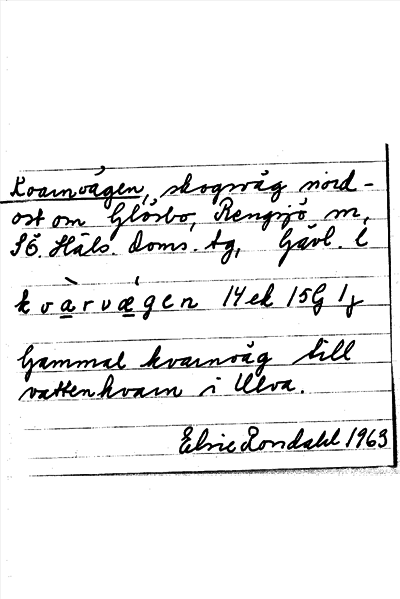 Kvarnvägen, skogsväg nord-
ost om Glösbo, Rengsjö m,
Sö. Häls. Doms. tg, Gävl. l
kvàrvǽgen 14ek 15G 1j
Gammal kvarnväg till
vattenkvarn i Ulva.
Elsie Rondahl 1963